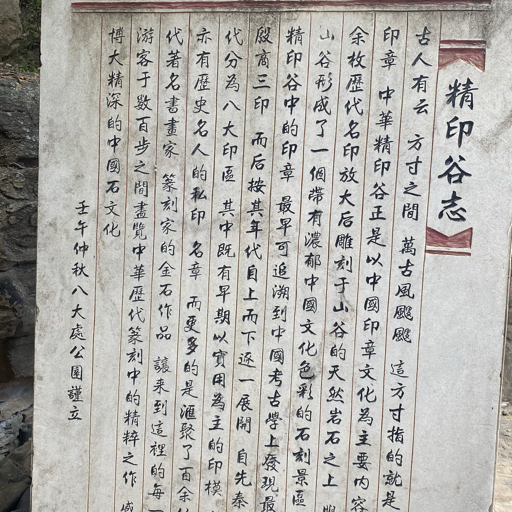 精印谷志
古人有云 方寸之間 萬古風飈飈 這方寸指的就是
印章 中華精印谷正是以中國印章文化為主要內容
余枚歷代名印放大后雕刻于山谷的天然岩石之上
山谷形成了一個帶有濃郁中國文化色彩的石刻景區
精印谷中的印章 最早可追溯到中國考古學上發現最
殷商三印 而后按其年代自上而下逐一展開 自先秦
代分為八大印區 其中既有早期以實用為主的印模
亦有歷史名人的私印 名章 而更多的是滙聚了百余
代著名書畫家 篆刻家的金石作品 讓來到這裡的每一
游客于數百步之間盡覽中華歷代篆刻中的精粹之作
博大精深的中國石文化
壬午仲秋八大處公園謹立